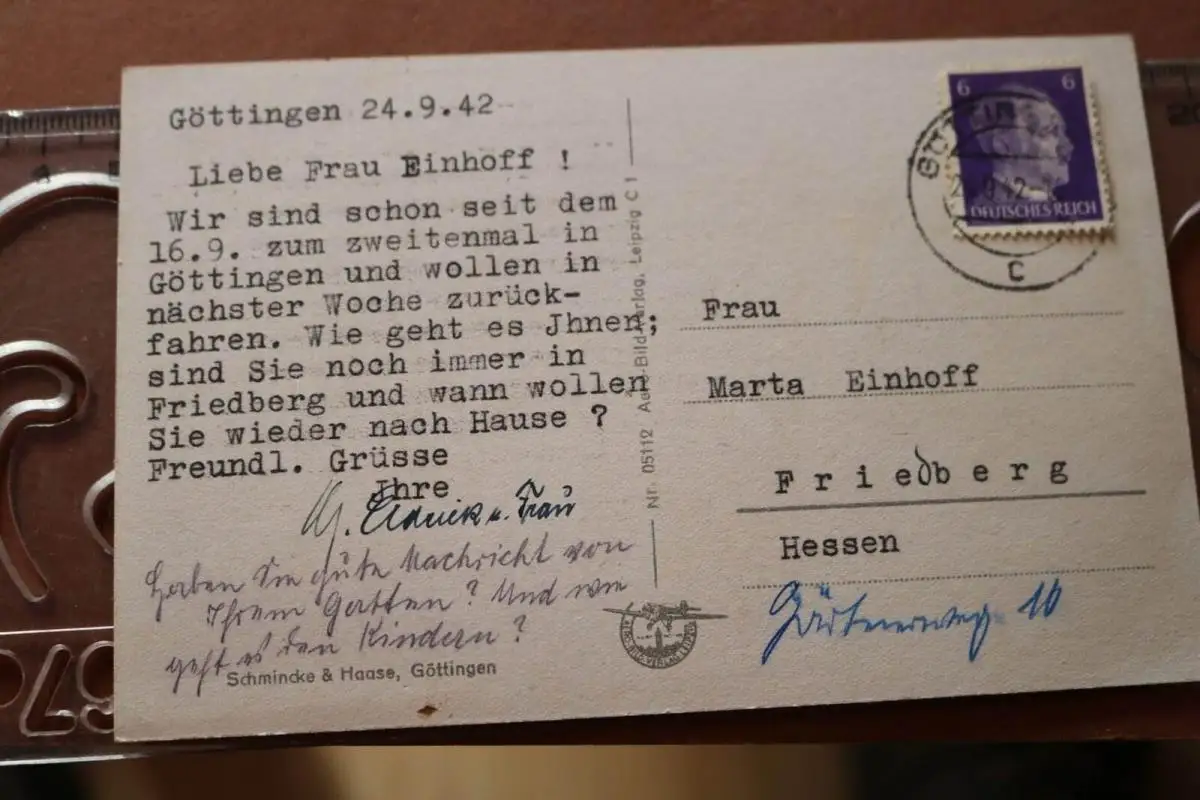 Göttingen 24.9.42
Liebe Frau Einhoff !
Wir sind schon seit dem
16.9. zum zweitenmal in
Göttingen und wollen in
nächster Woche zurück-
fahren. Wie geht es Jhnen;
sind Sie noch immer in
Friedberg und wann wollen
Sie wieder nach Hause ?
Freundl. Grüsse
Jhre
u. Frau
Haben Sie gute Nachricht von
Ihrem Gatten? Und wie
geht es den Kindern?
Schmincke & Haase, Göttingen
Nr. 05112 Aero-Bild-Verlag, Leipzig C 1
6 6
DEUTSCHES REICH
C
Frau
Marta Einhoff
Friedberg
Hessen
Gärtnerweg 10